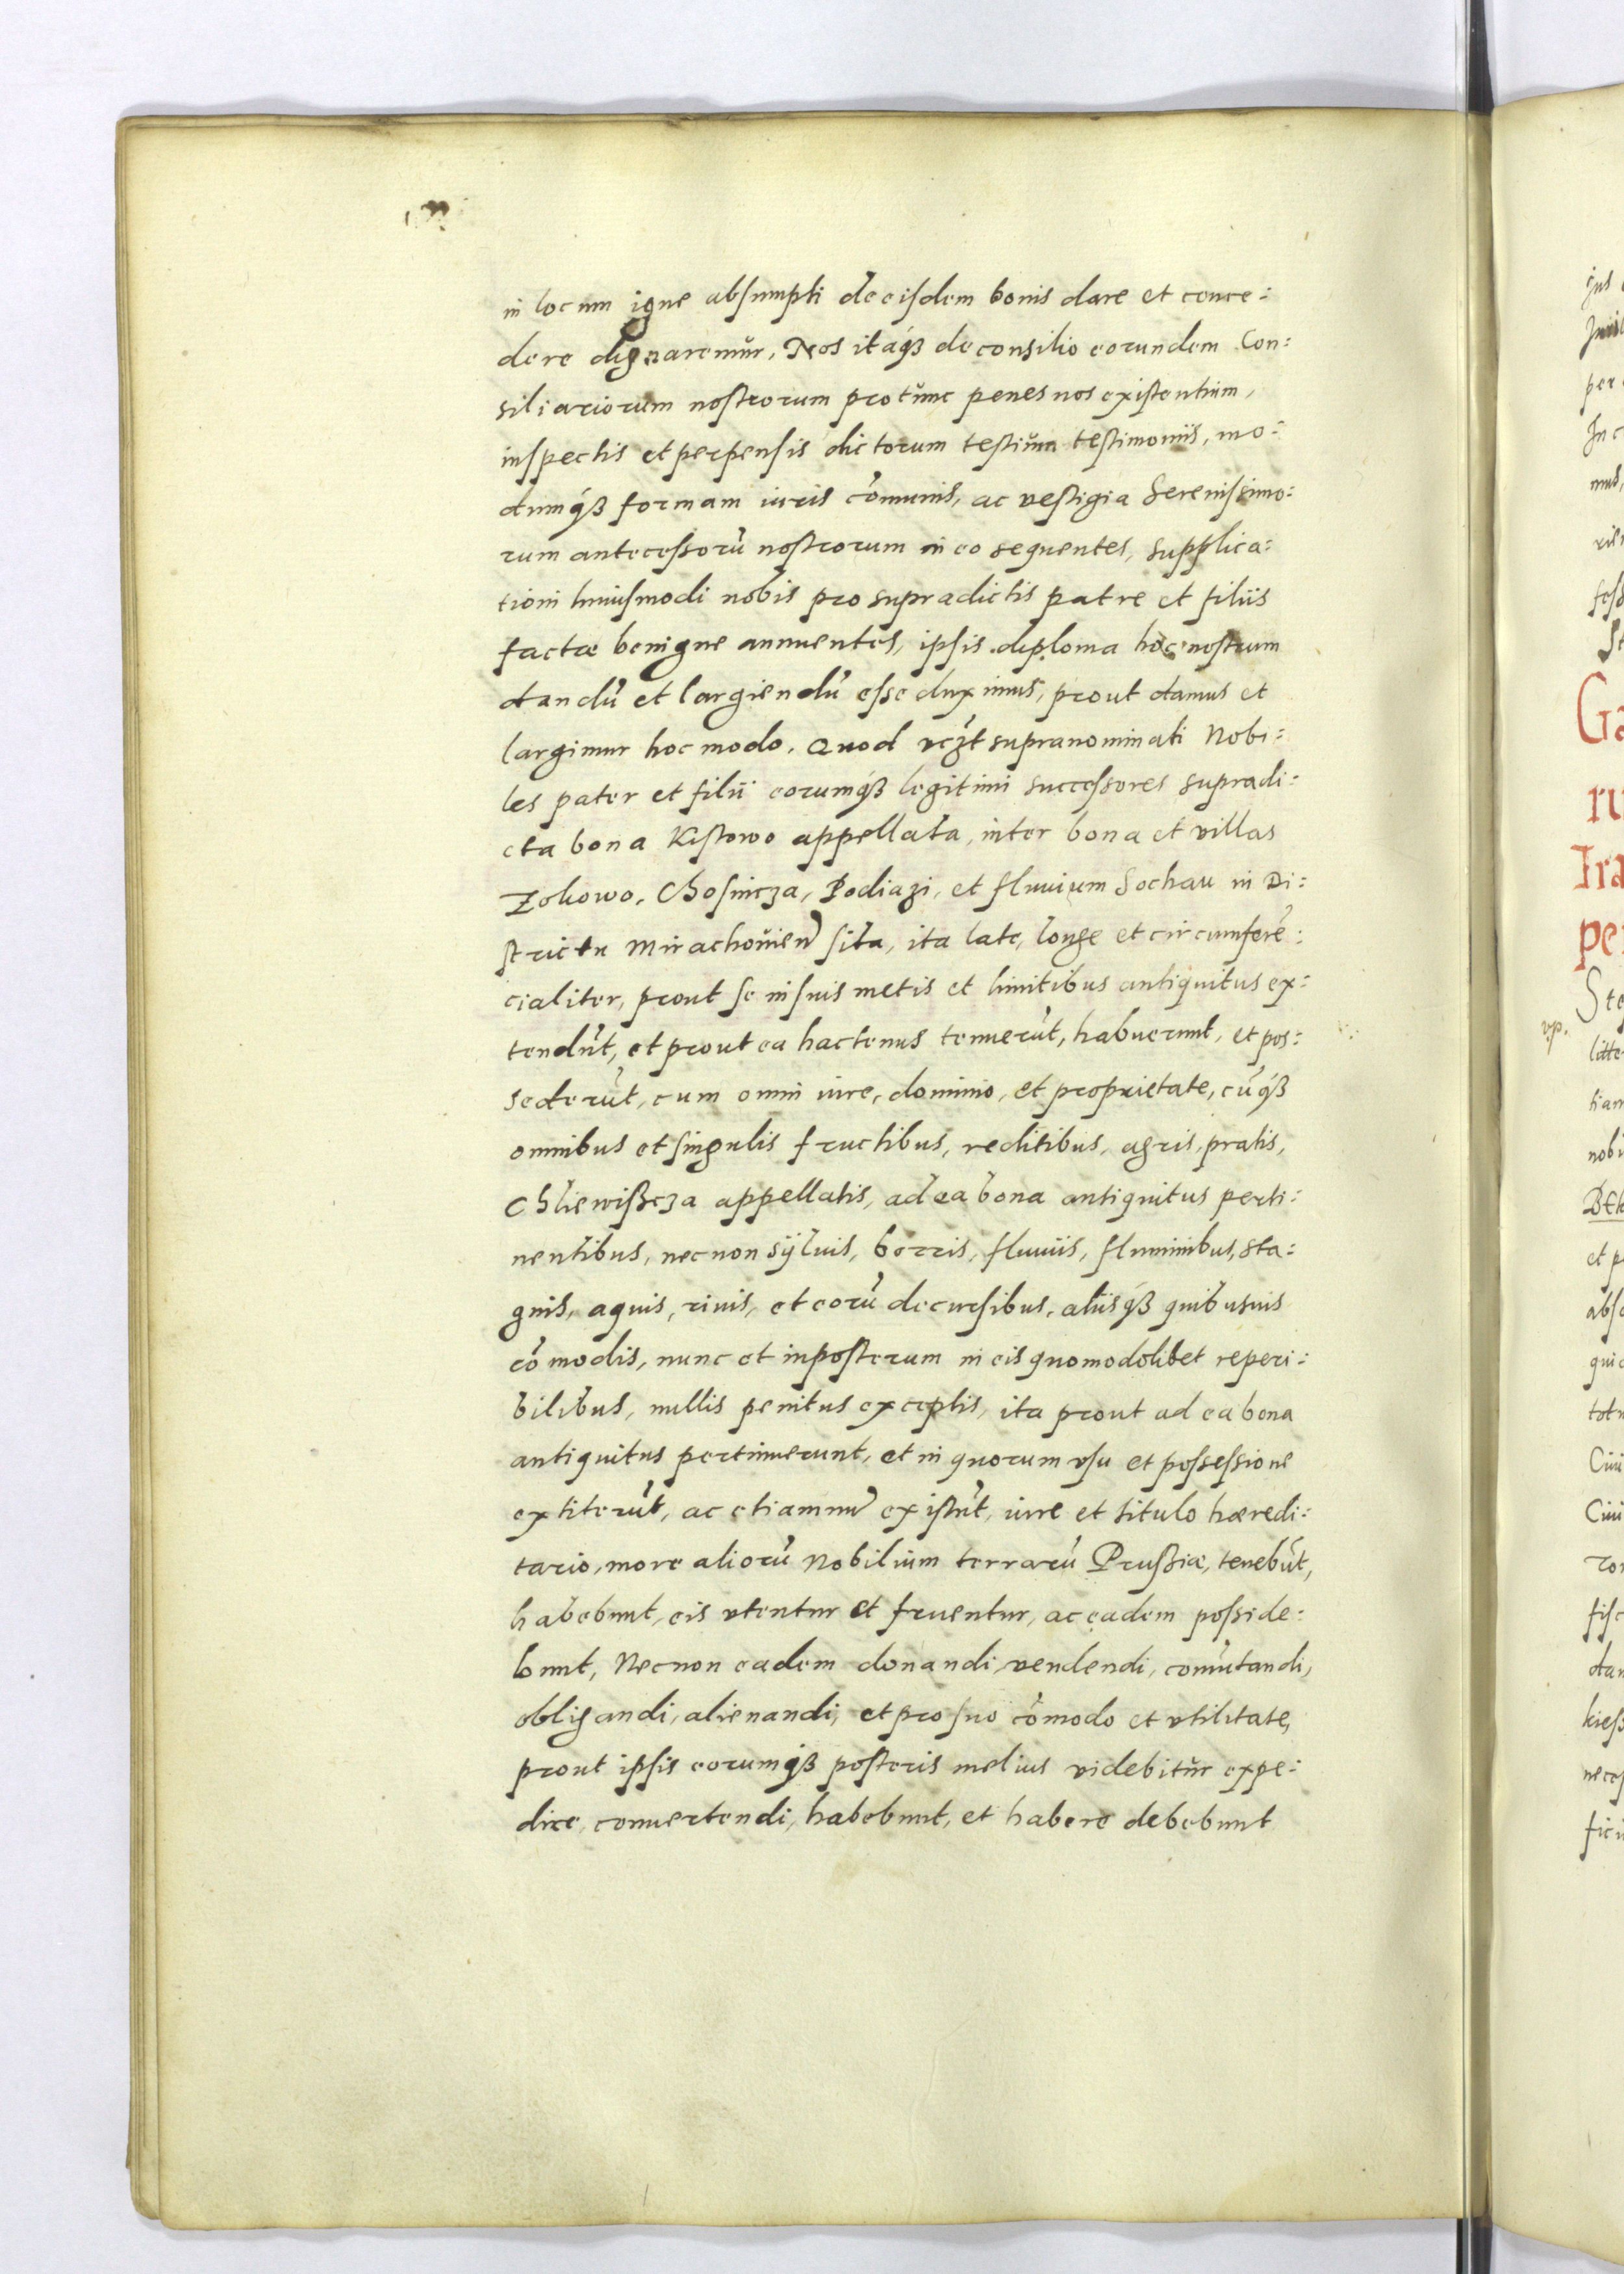 in locum igne absumpti de eisdem bonis dare et conce:
dere dignaremur, Nos itaqȝ de consilio eorundem Con:
siliariorum nostrorum protunc penes nos existentium,
inspectis et perpensis dictorum testium testimoniis, mo:
dumqȝ formam iuris cōmunis, ac vestigia Serenissimo:
rum antecessorū nostrorum in eo sequentes, supplica:
tioni huiusmodi nobis pro supradictis patre et filiis
factæ benigne annuentes, ipsis diploma hoc nostrum
dandū et largiendū esse duximus, prout damus et
largimur hoc modo. Quod vcȝt supranominati Nobi:
les pater et filii eorumqȝ legitimi successores supradi:
cta bona Kistowo appellata, inter bona et villas
Zokowo, Chosnicza, Podiazi, et fluvium Sochau in Di:
strictu Mirachowień sita, ita late, longe et circumferē:
cialiter, prout se in suis metis et limitibus antiquitus ex:
tendūt, et prout ea hactenus tenuerūt, habuerunt, et pos:
sederūt, cum omni iure, dominio, et proprietate, cūqȝ
omnibus et singulis fructibus, reditibus, agris, pratis,
Chliewißcza appellatis, ad ea bona antiquitus perti:
nentibus, necnon sÿluis, borris, fluuiis, fluminibus, sta:
gnis, aquis, riuis, et eorū decursibus, aliisqȝ quibusuis
cōmodis, nunc et inposterum in eis quomodolibet reperi:
bilibus, nullis penitus exceptis, ita prout ad ea bona
antiquitus pertinuerunt, et in quorum vsu et possessione
extiterūt, ac etiamnū existūt, iure et titulo hæredi:
tario, more aliorū Nobilium terrarū Prussiæ, tenebūt,
habebunt, eis vtentur et fruentur, ac eadem posside:
bunt, Necnon eadem donandi, vendendi, com̄utandi,
obligandi, alienandi, et pro suo cōmodo et vtilitate,
prout ipsis eorumqȝ posteris melius videbitur expe:
dire, conuertendi, habebunt, et habere debebunt